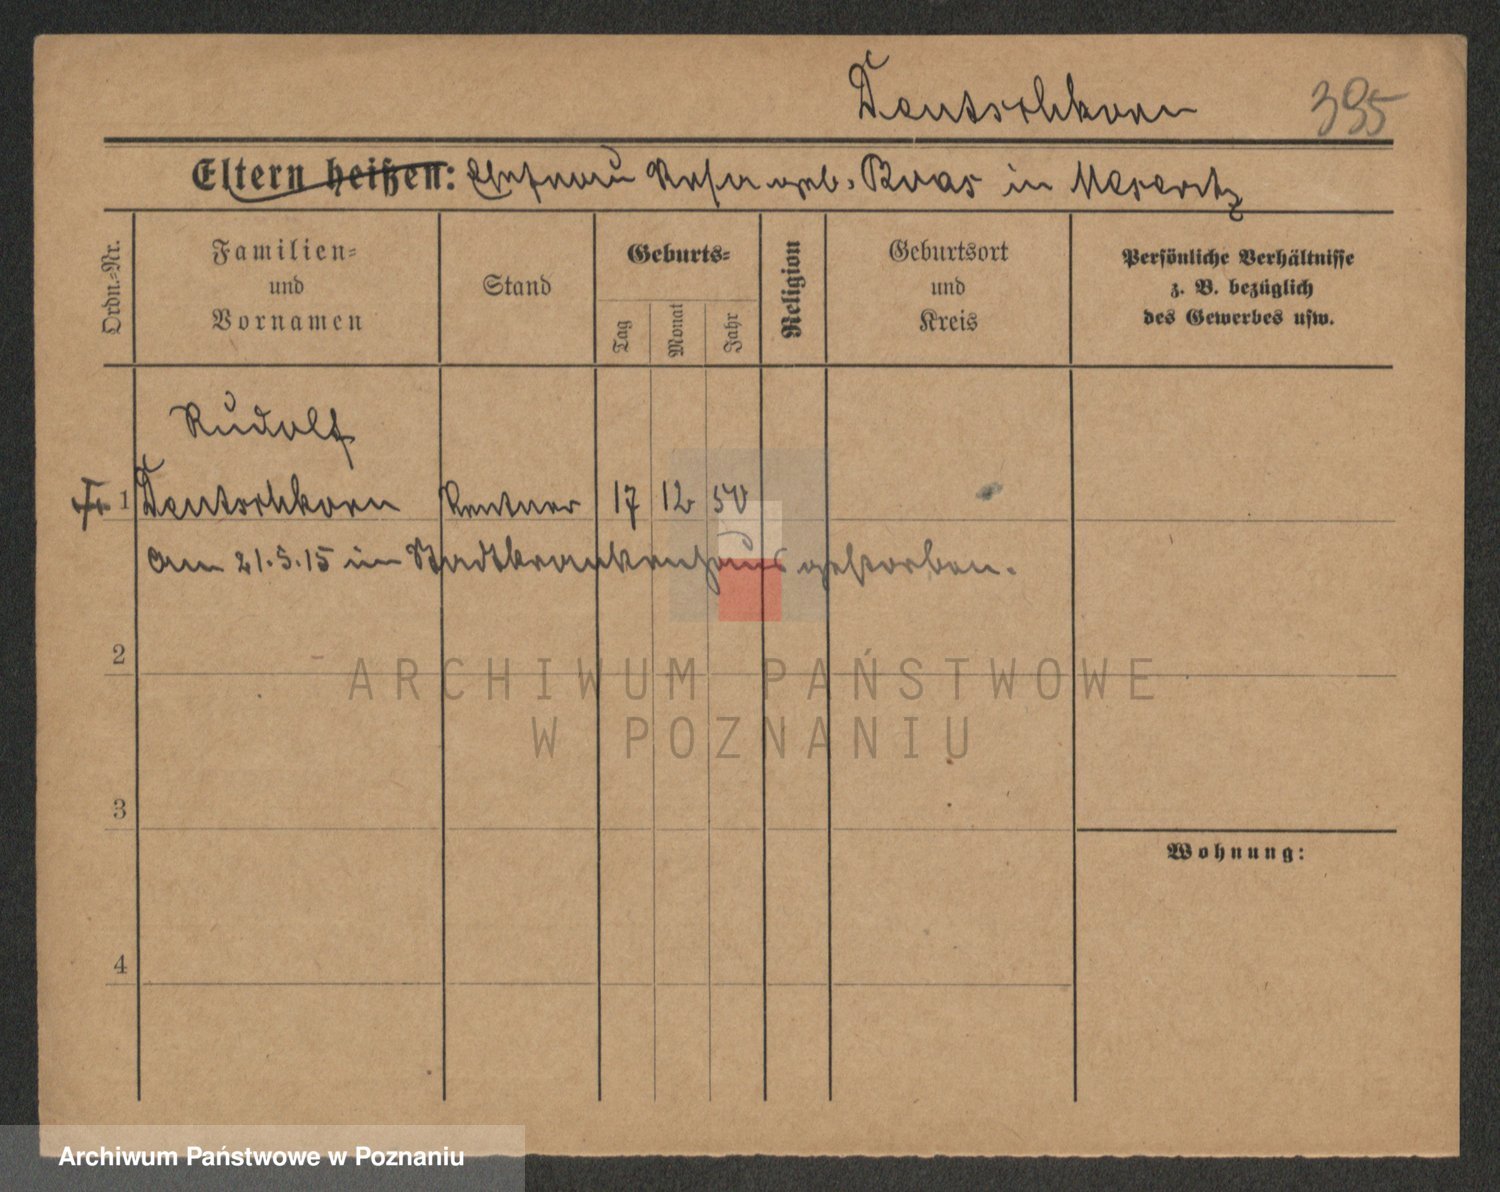 Deutschkorn 395
Eltern heißen: Ehefrau Rosa geb. Boas in Meseritz
Ordn.-Nr.
Familien-
und
Vornamen
Stand
Geburts-
Tag
Monat
Jahr
Religion
Geburtsort
und
Kreis
Persönliche Verhältnisse
z. B. bezüglich
des Gewerbes usw.
Rudolf
1 Deutschkorn Rentner 17 12 50
am 21.5.15 im Stadtkrankenhaus gestorben.
2
ARCHIWUM PAŃSTWOWE
W POZNANIU
3
Wohnung:
4
Archiwum Państwowe w Poznaniu